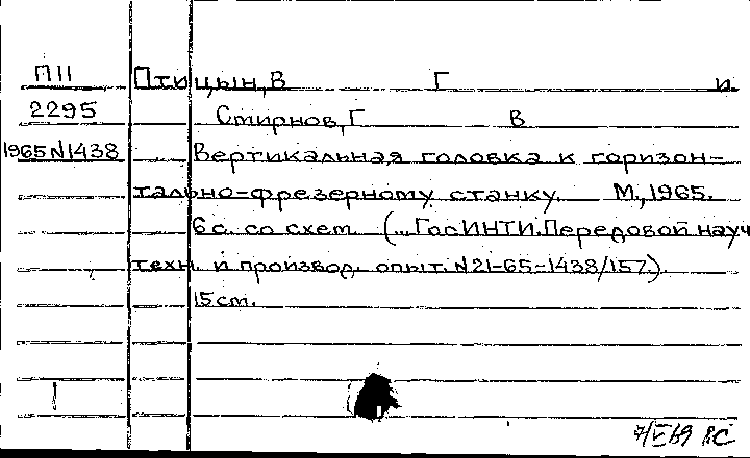 П11 Птицын, В Г и.
2295 Смирнов, Г В
1965 N1438 Вертикальная головка к горизон-
тально-фрезерному станку. М., 1965.
6 с. со схем. (...ГосИНТИ. Передовой науч
техн. и производ. опыт. N21-65-1438/157.)
15 см.